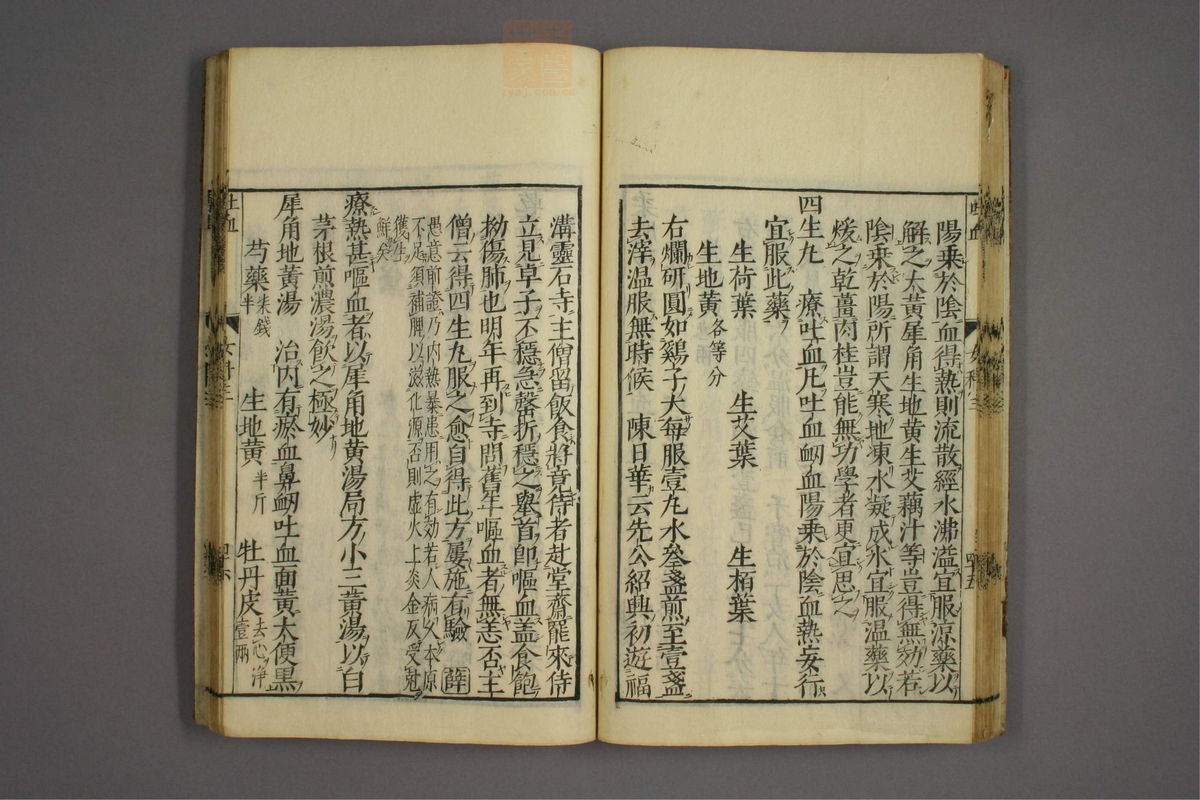 陽乗於陰血得熱則流散經水沸溢宜服涼藥以
解之大黄犀角生地黄生艾藕汁等豈得無効若
陰乗於陽所謂天寒地凍水凝成氷宜服温藥以
煖之乾薑肉桂豈能無功學者更宜思之
四生丸　療吐血凡吐血衂血陽乗於陰血熱妄行
宜服此藥
生荷葉　生艾葉　生栢葉
生地黄各等分
右爛研圓如鷄子大每服壹丸水叄盞煎至壹盞
去滓温服無時候　陳日華云先公紹興初遊福
溝靈石寺主僧留飯食將竟侍者赴堂齋罷來侍
立見卓子不穩急罄折穩之舉首卽嘔血盖食飽
拗傷肺也明年再到寺問舊年嘔血者無恙否主
僧云得四生丸服之愈自得此方屢施有驗　薛
愚意前證乃内熱暴患用之有効若人病久本原
不足須補脾以滋化源否則虚火上炎金反受尅
獲生
鮮矣
療熱甚嘔血者以犀角地黄湯局方小三黄湯以白
茅根煎濃湯飲之極妙
犀角地黄湯　治内有瘀血鼻衂吐血面黄大便黒
芍藥　半　生地黄半斤　牡丹皮去心净壹兩
吐血
四十五